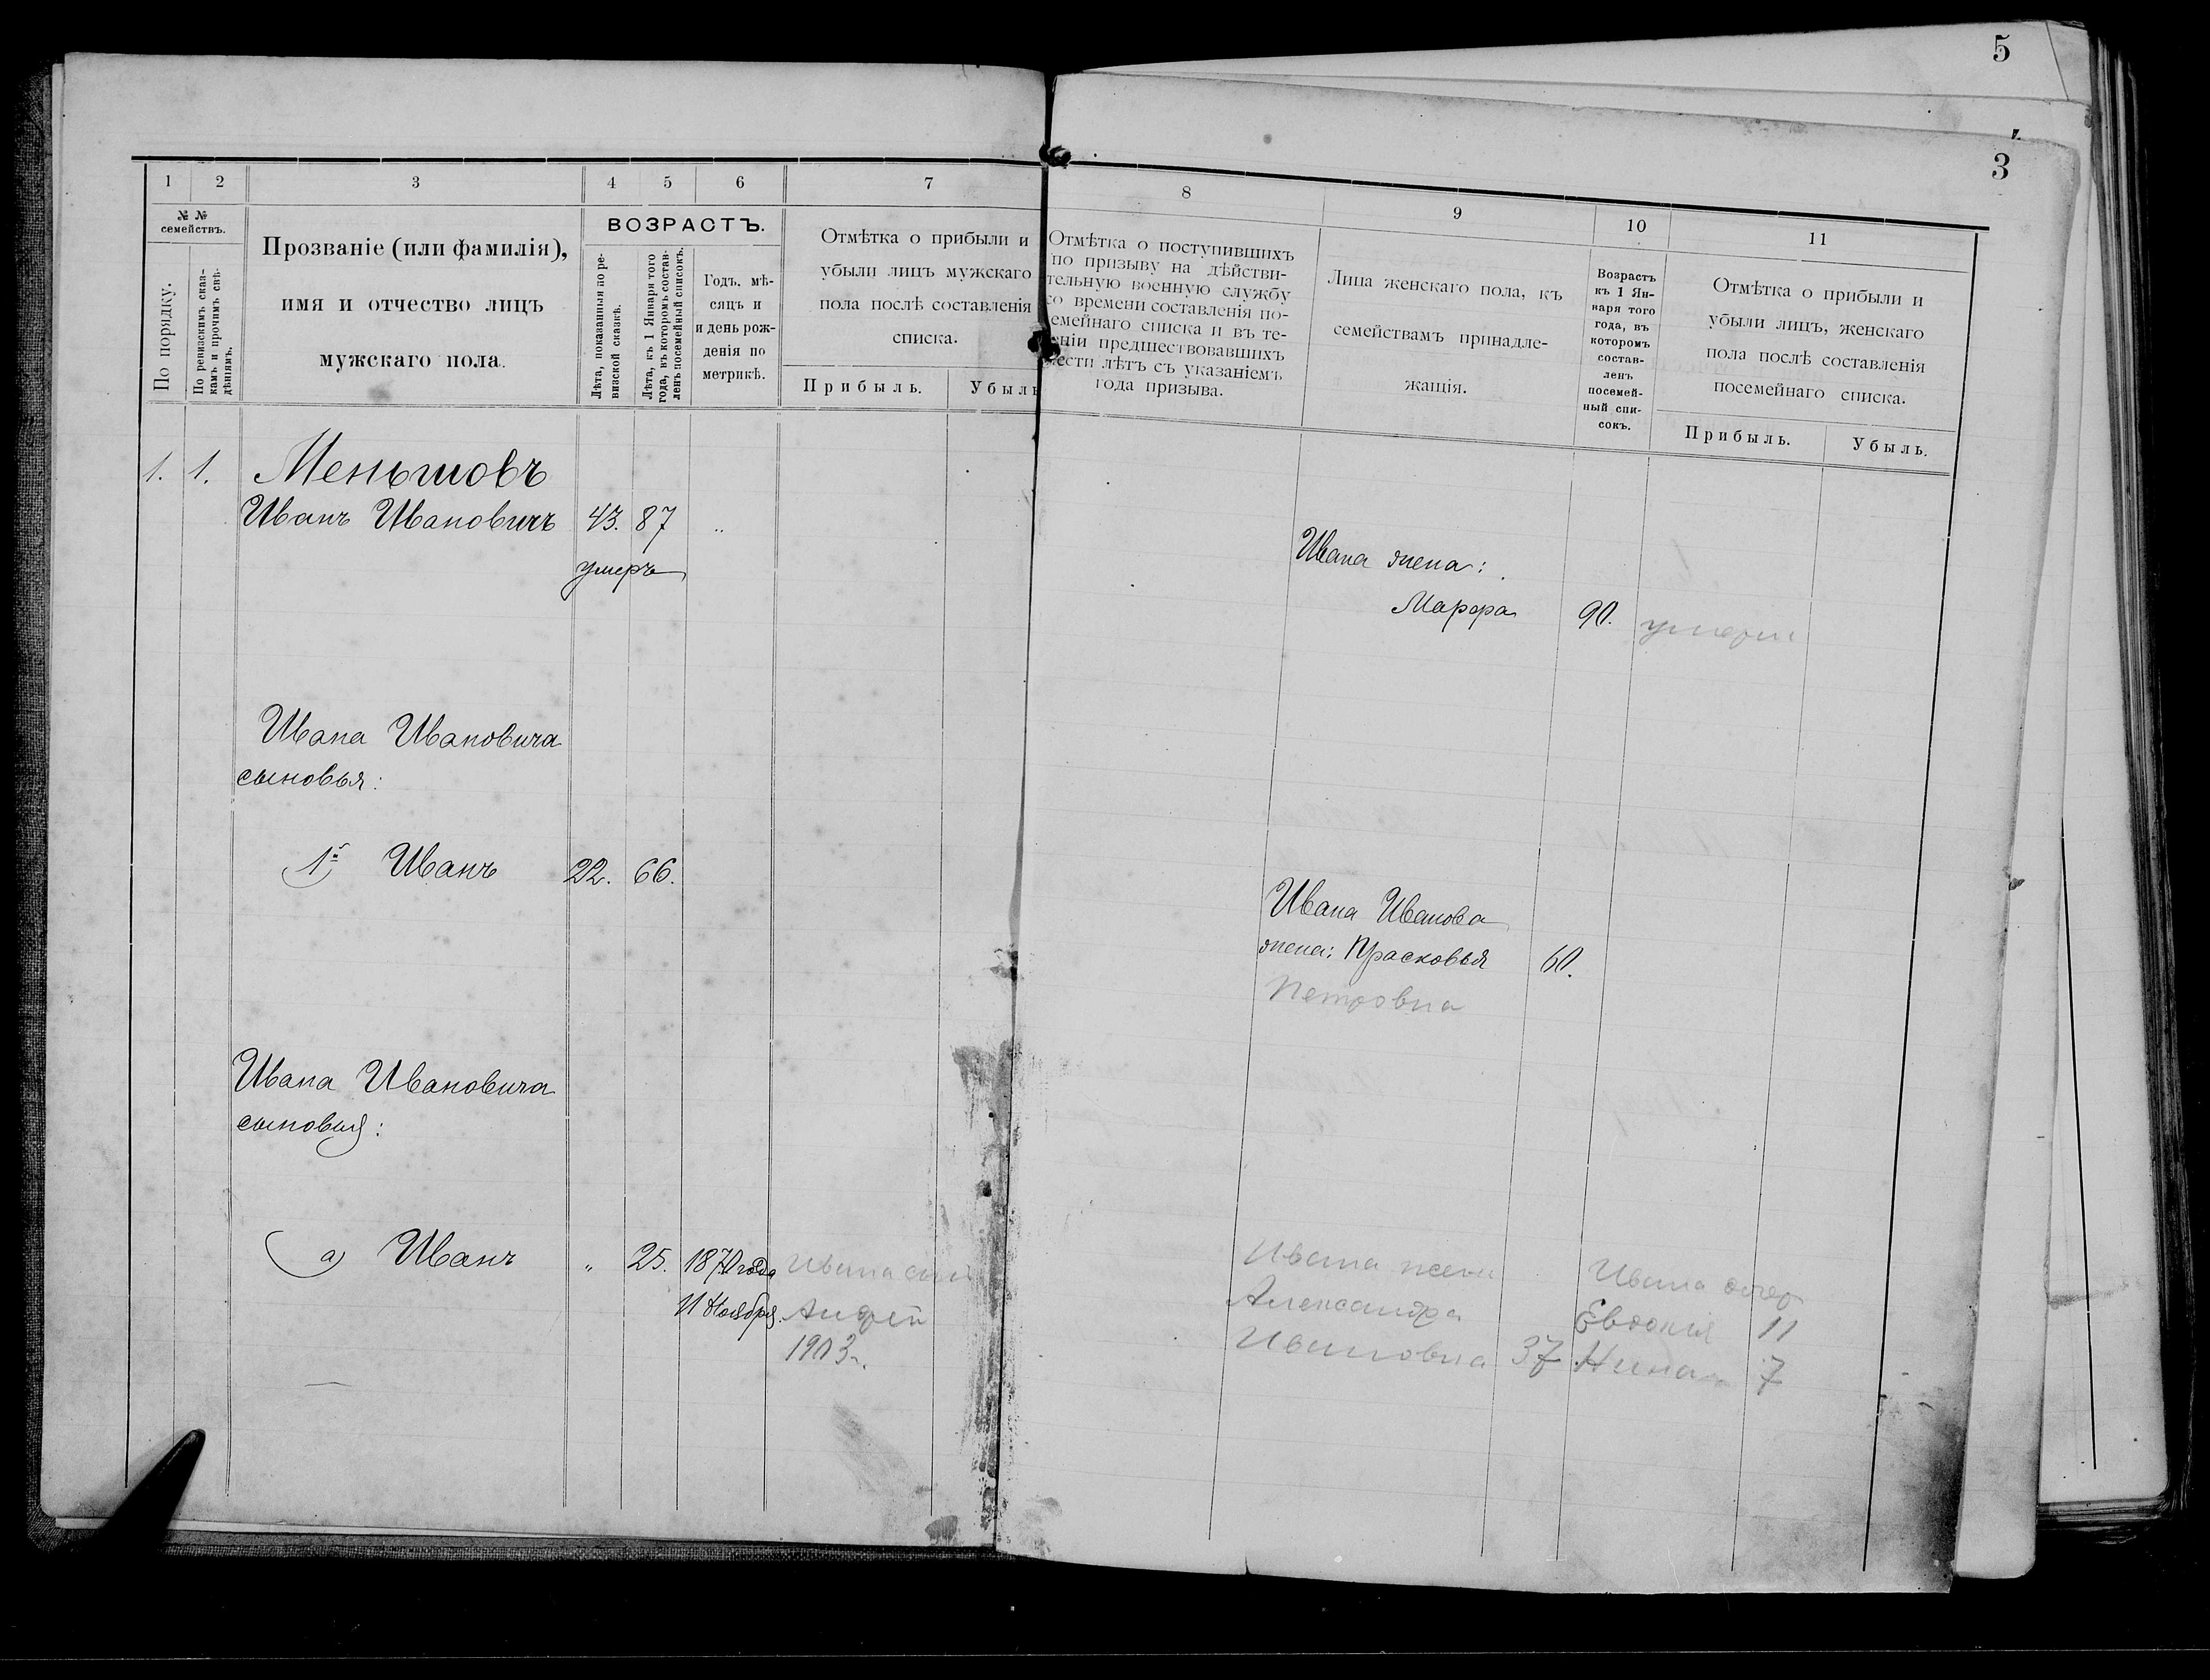 5
3
1 2 3 4 5 6 7
№ № семействъ.
По порядку.
По ревизскимъ сказкамъ и прочимъ свѣдѣніямъ.
Прозваніе (или фамилія),
имя и отчество лицъ
мужскаго пола.
ВОЗРАСТЪ.
Лѣта, показанныя по ревизской сказкѣ.
Лѣта, къ 1 Января того года, въ которомъ составленъ посемейный списокъ.
Годъ, мѣ-
сяцъ и
и день рож-
денія по
метрикѣ.
Отмѣтка о прибыли и
убыли лицъ мужскаго
пола послѣ составленія
списка.
Прибыль. Убыль
1. 1. Меньшовъ
Иванъ Ивановичъ 43. 87 „
умеръ
Ивана Ивановича
сыновья:
1й Иванъ 22. 66.
Ивана Ивановича
сыновья:
а) Иванъ „ 25. 1870 года Ивана сын
11 Ноября. Андрей
1903 г.
8 9 10 11
Отмѣтка о поступившихъ
по призыву на дѣйстви-
тельную военную службу
со времени составленія по-
семейнаго списка и въ те-
еніи предшествовавшихъ
шести лѣтъ съ указаніемъ
года призыва.
Лица женскаго пола, къ
семействамъ принадле-
жащія.
Возрастъ
къ 1 Ян-
варя того
года, въ
которомъ
состав-
ленъ
посемей-
ный спи-
сокъ.
Отмѣтка о прибыли и
убыли лицъ, женскаго
пола послѣ составленія
посемейнаго списка.
Прибыль. Убыль.
Ивана жена:
Марфа 90. умерла
Ивана Иванова
жена: Прасковья 60.
Петровна
Ивана жена Ивана дочер
Александра Евдокия 11
Ивановна 37 Нина 7